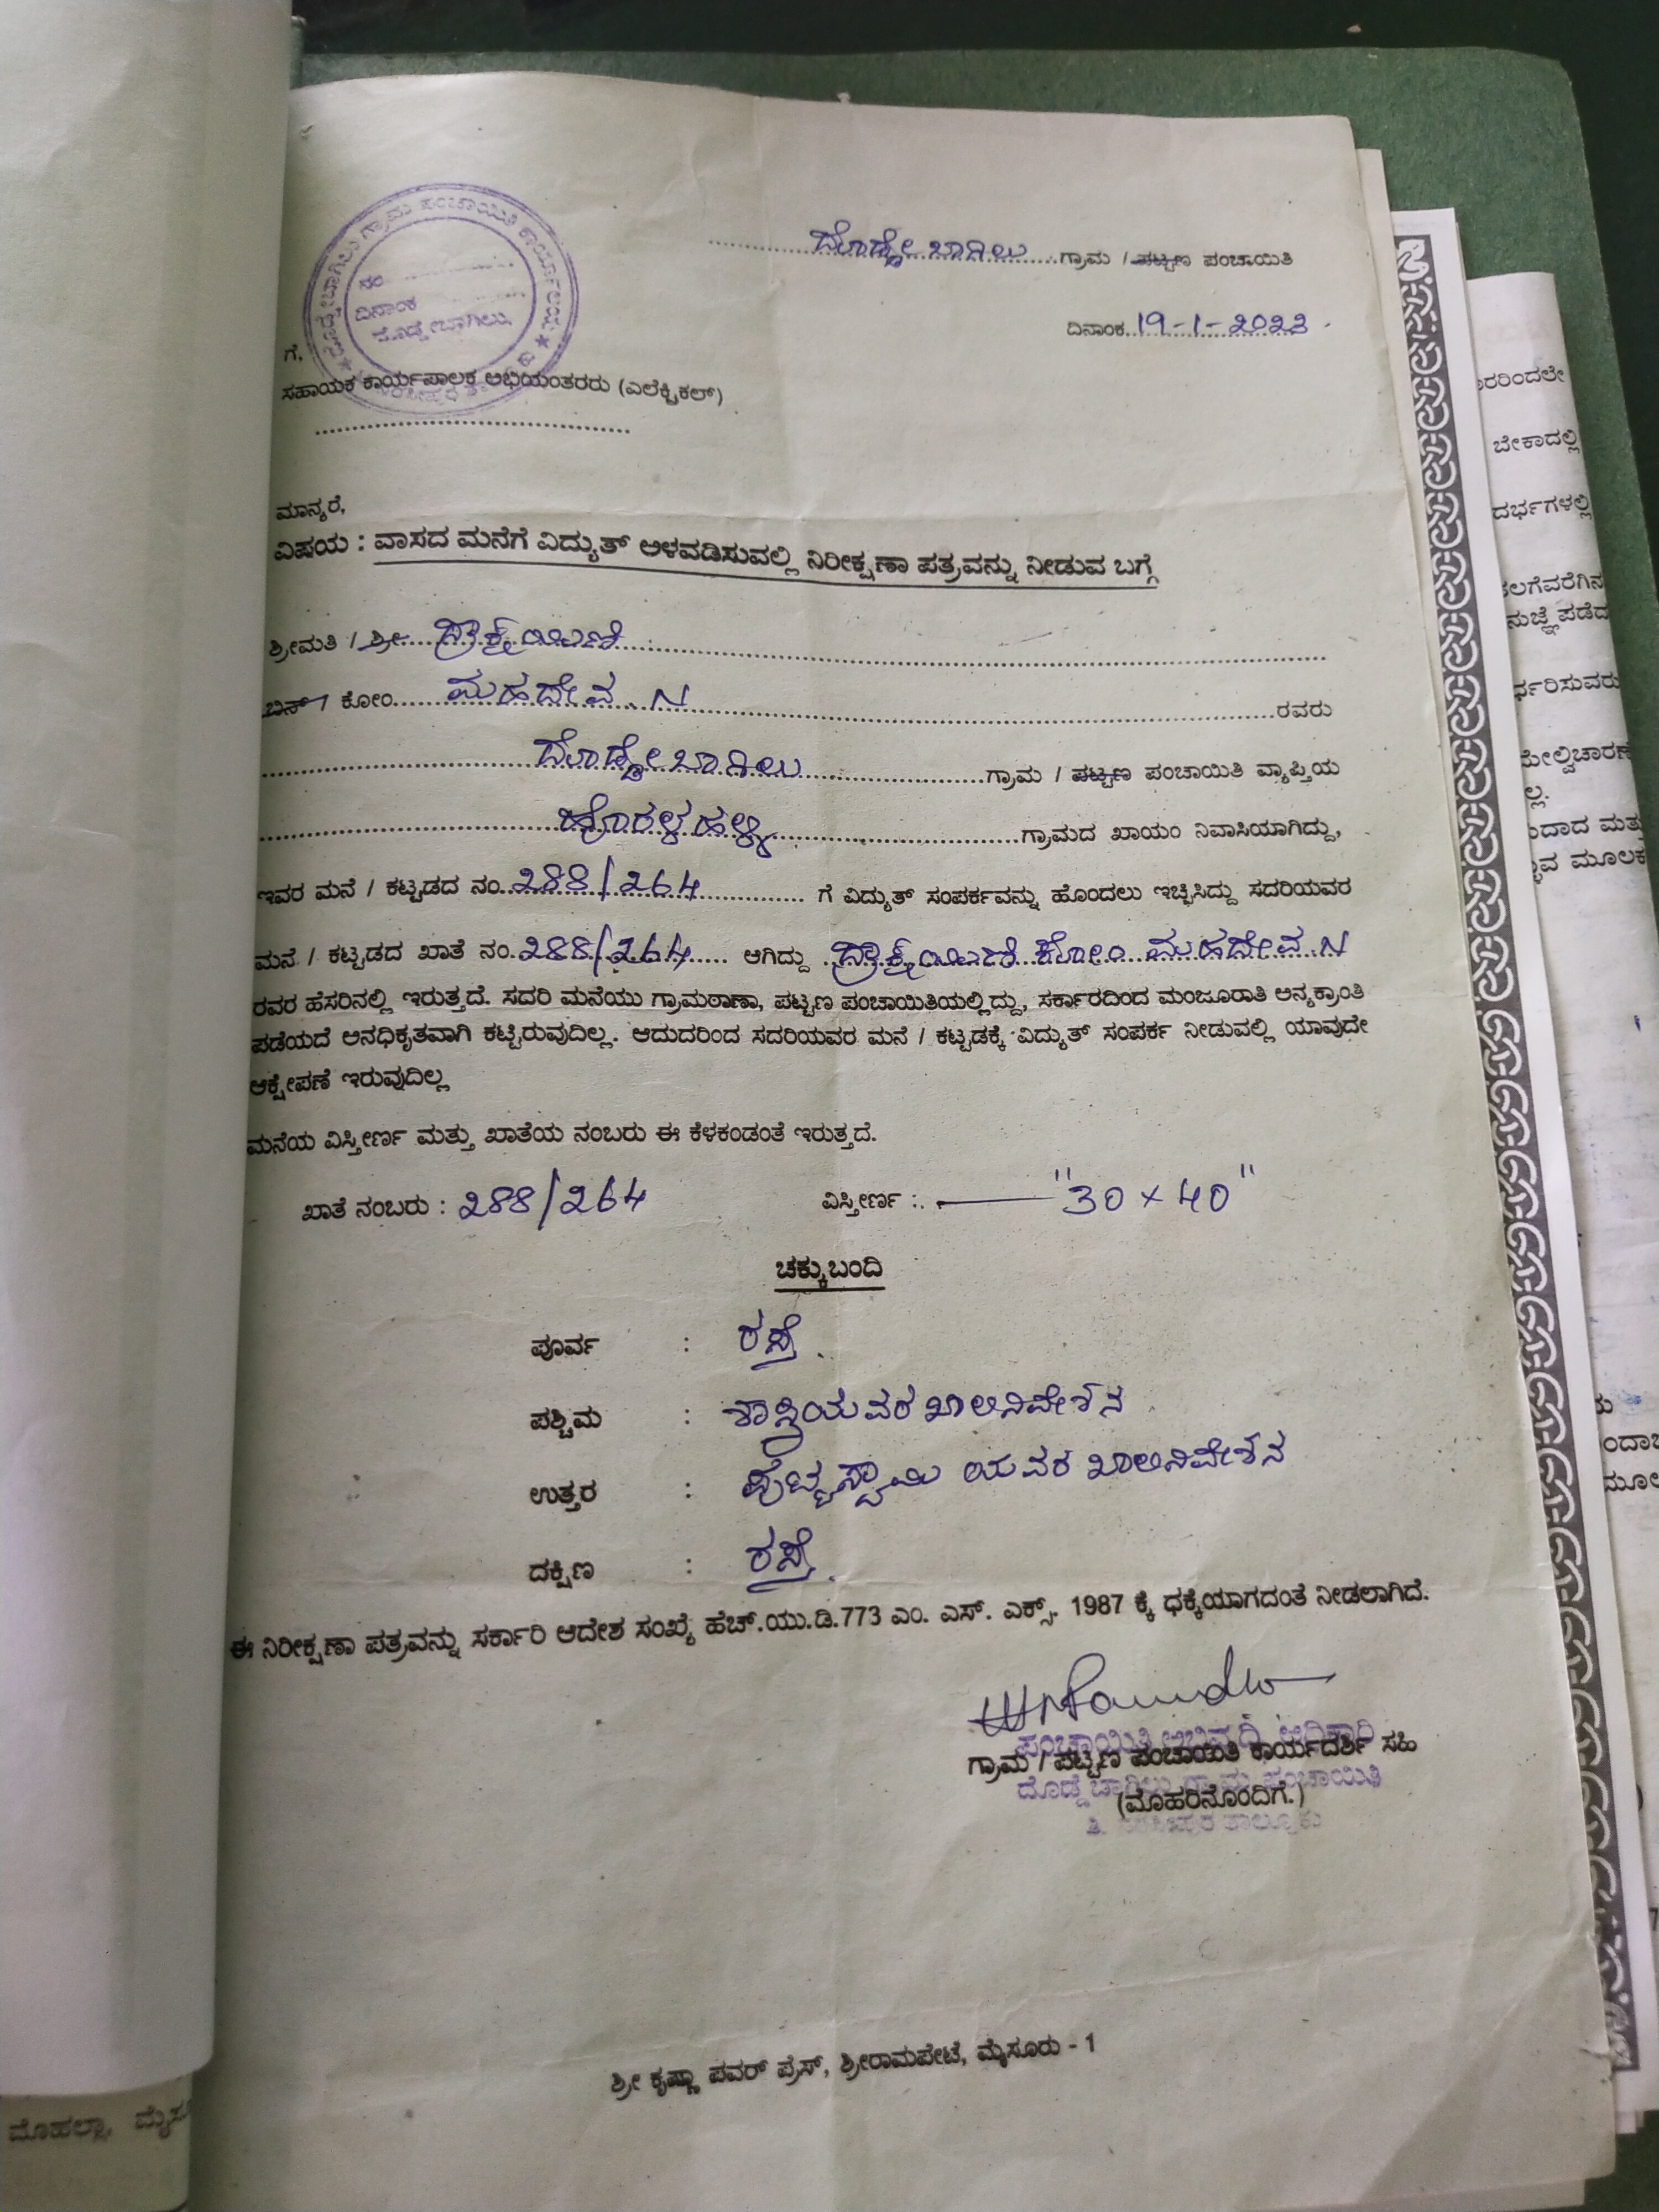 ದೊಡ್ಡೇಬಾಗಿಲು ಗ್ರಾಮ ಪಂಚಾಯಿತಿ ಕಾರ್ಯಾಲಯ
ನಂ
ದಿನಾಂಕ
ದೊಡ್ಡೇಬಾಗಿಲು.
ದೊಡ್ಡೇಬಾಗಿಲು ಗ್ರಾಮ / ಪಟ್ಟಣ ಪಂಚಾಯಿತಿ
ದಿನಾಂಕ 19-1-2023
ಗೆ,
ಸಹಾಯಕ ಕಾರ್ಯಪಾಲಕ ಅಭಿಯಂತರರು (ಎಲೆಕ್ಟ್ರಿಕಲ್)
ಮಾನ್ಯರೆ,
ವಿಷಯ : ವಾಸದ ಮನೆಗೆ ವಿದ್ಯುತ್ ಅಳವಡಿಸುವಲ್ಲಿ ನಿರೀಕ್ಷಣಾ ಪತ್ರವನ್ನು ನೀಡುವ ಬಗ್ಗೆ
ಶ್ರೀಮತಿ / ಶ್ರೀ
ಬಿನ್ / ಕೋಂ ಮಹದೇವ. N ರವರು
ದೊಡ್ಡೇಬಾಗಿಲು ಗ್ರಾಮ / ಪಟ್ಟಣ ಪಂಚಾಯಿತಿ ವ್ಯಾಪ್ತಿಯ
ಹೊರಳಹಳ್ಳಿ ಗ್ರಾಮದ ಖಾಯಂ ನಿವಾಸಿಯಾಗಿದ್ದು,
ಇವರ ಮನೆ / ಕಟ್ಟಡದ ನಂ. 288/264 ಗೆ ವಿದ್ಯುತ್ ಸಂಪರ್ಕವನ್ನು ಹೊಂದಲು ಇಚ್ಛಿಸಿದ್ದು ಸದರಿಯವರ
ಮನೆ / ಕಟ್ಟಡದ ಖಾತೆ ನಂ. 288/264 ಆಗಿದ್ದು ಕೋಂ ಮಹದೇವ. N
ರವರ ಹೆಸರಿನಲ್ಲಿ ಇರುತ್ತದೆ. ಸದರಿ ಮನೆಯು ಗ್ರಾಮಠಾಣಾ, ಪಟ್ಟಣ ಪಂಚಾಯಿತಿಯಲ್ಲಿದ್ದು, ಸರ್ಕಾರದಿಂದ ಮಂಜೂರಾತಿ ಅನ್ಯಕ್ರಾಂತಿ
ಪಡೆಯದೆ ಅನಧಿಕೃತವಾಗಿ ಕಟ್ಟಿರುವುದಿಲ್ಲ. ಆದುದರಿಂದ ಸದರಿಯವರ ಮನೆ / ಕಟ್ಟಡಕ್ಕೆ ವಿದ್ಯುತ್ ಸಂಪರ್ಕ ನೀಡುವಲ್ಲಿ ಯಾವುದೇ
ಆಕ್ಷೇಪಣೆ ಇರುವುದಿಲ್ಲ
ಮನೆಯ ವಿಸ್ತೀರ್ಣ ಮತ್ತು ಖಾತೆಯ ನಂಬರು ಈ ಕೆಳಕಂಡಂತೆ ಇರುತ್ತದೆ.
ಖಾತೆ ನಂಬರು : 288/264 ವಿಸ್ತೀರ್ಣ : "30 × 40"
ಚಕ್ಕುಬಂದಿ
ಪೂರ್ವ : ರಸ್ತೆ.
ಪಶ್ಚಿಮ : ಶಾಸ್ತ್ರಿಯವರ ಖಾಲಿನಿವೇಶನ
ಉತ್ತರ : ಪುಟ್ಟಸ್ವಾಮಿ ಯವರ ಖಾಲಿನಿವೇಶನ
ದಕ್ಷಿಣ : ರಸ್ತೆ.
ಈ ನಿರೀಕ್ಷಣಾ ಪತ್ರವನ್ನು ಸರ್ಕಾರಿ ಆದೇಶ ಸಂಖ್ಯೆ ಹೆಚ್.ಯು.ಡಿ.773 ಎಂ. ಎಸ್. ಎಕ್ಸ್. 1987 ಕ್ಕೆ ಧಕ್ಕೆಯಾಗದಂತೆ ನೀಡಲಾಗಿದೆ.
ಪಂಚಾಯಿತಿ ಅಭಿವೃದ್ಧಿ ಅಧಿಕಾರಿ
ಗ್ರಾಮ / ಪಟ್ಟಣ ಪಂಚಾಯಿತಿ ಕಾರ್ಯದರ್ಶಿ ಸಹಿ
ದೊಡ್ಡೇಬಾಗಿಲು ಗ್ರಾಮ ಪಂಚಾಯಿತಿ
(ಮೊಹರಿನೊಂದಿಗೆ.)
ಶ್ರೀ ಕೃಷ್ಣಾ ಪವರ್ ಪ್ರೆಸ್, ಶ್ರೀರಾಮಪೇಟೆ, ಮೈಸೂರು - 1
ಮೊಹಲ್ಲಾ,
ಬೇಕಾದಲ್ಲಿ